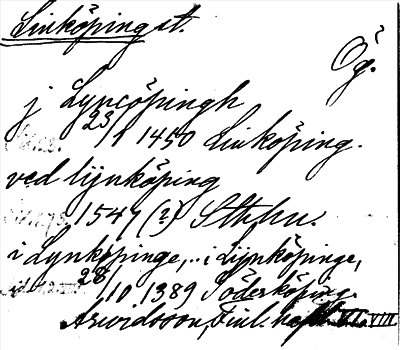 Linköping st.
Ög.
j Lyncöpingh
23/1 1450 Linköping.
ved lijnköping
1547 (?) Sthlm.
i Lynköpinge, .. i Lijnköpinge,
28/10 1389 Söderköping.
Arwidsson, Finl. VIII